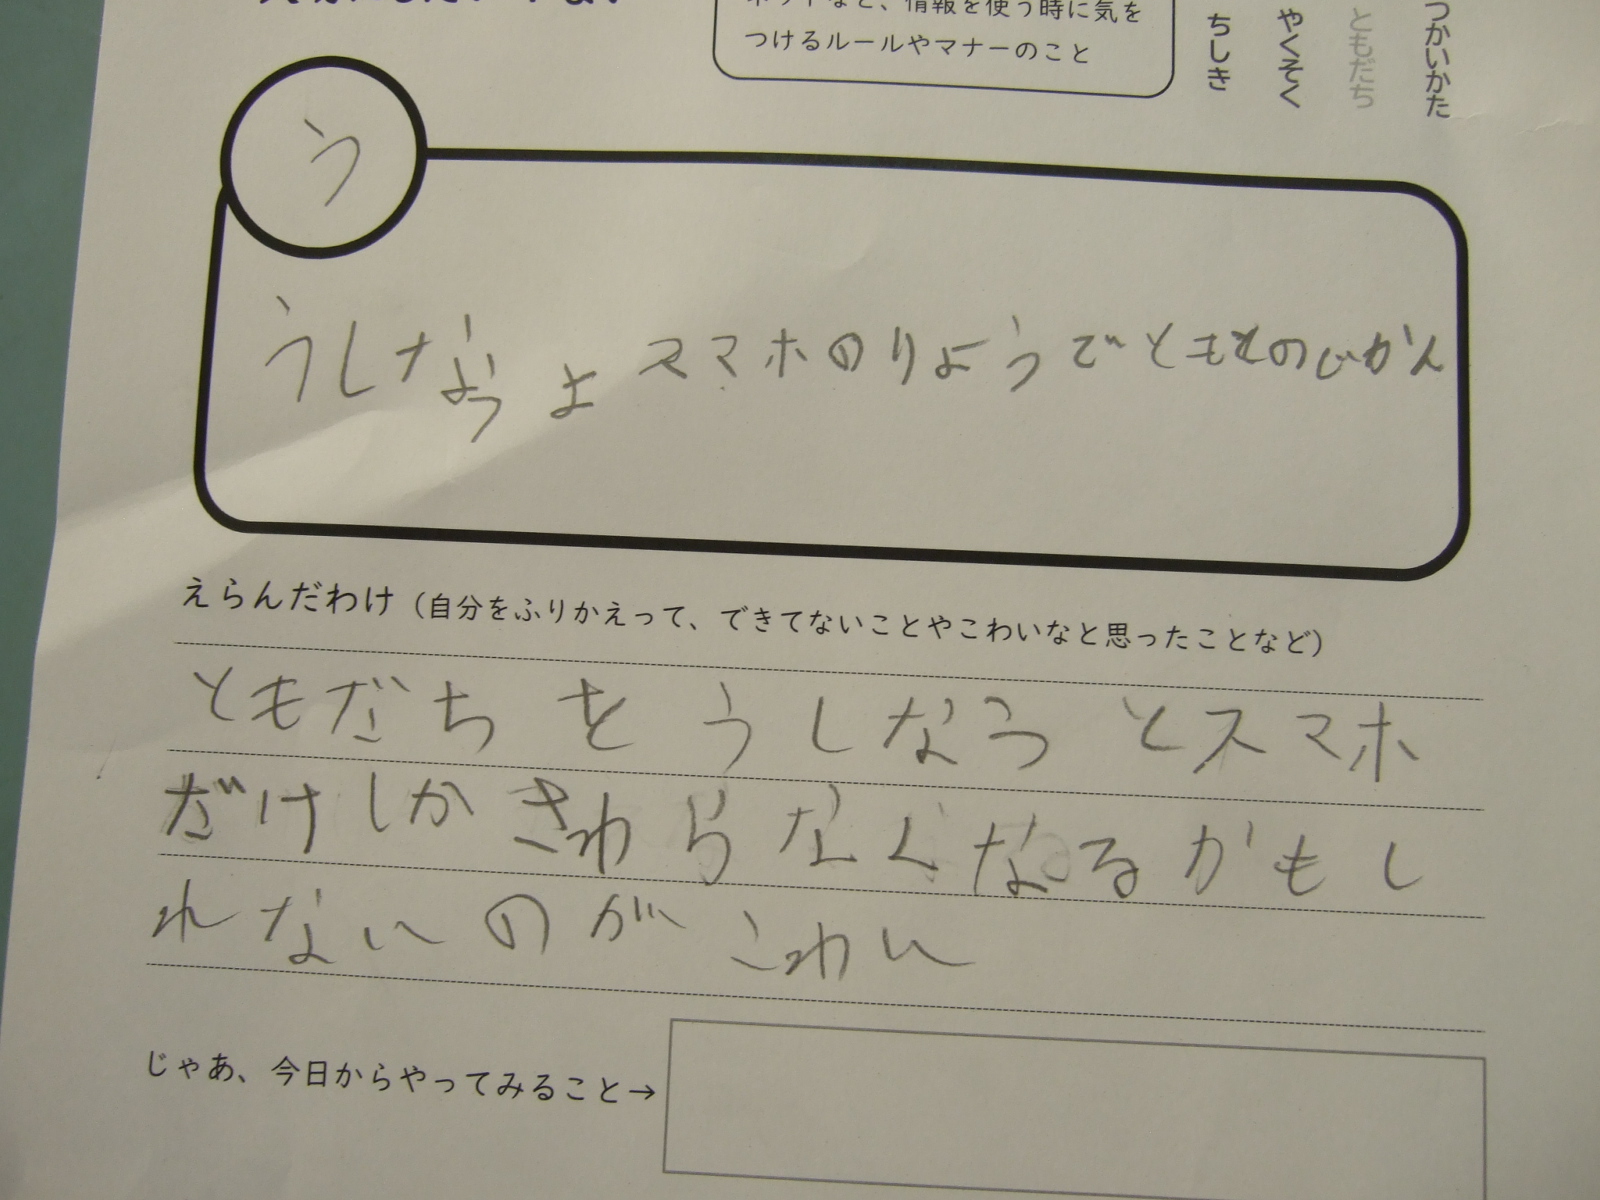 ネットなど、情報を使う時に気を
つけるルールやマナーのこと
つかいかた
ともだち
やくそく
ちしき
う
うしなうよ スマホのりようでともとのじかん
えらんだわけ（自分をふりかえって、できてないことやこわいなと思ったことなど）
ともだちをうしなうとスマホ
だけしかさわらなくなるかもし
れないのがこわい
じゃあ、今日からやってみること→